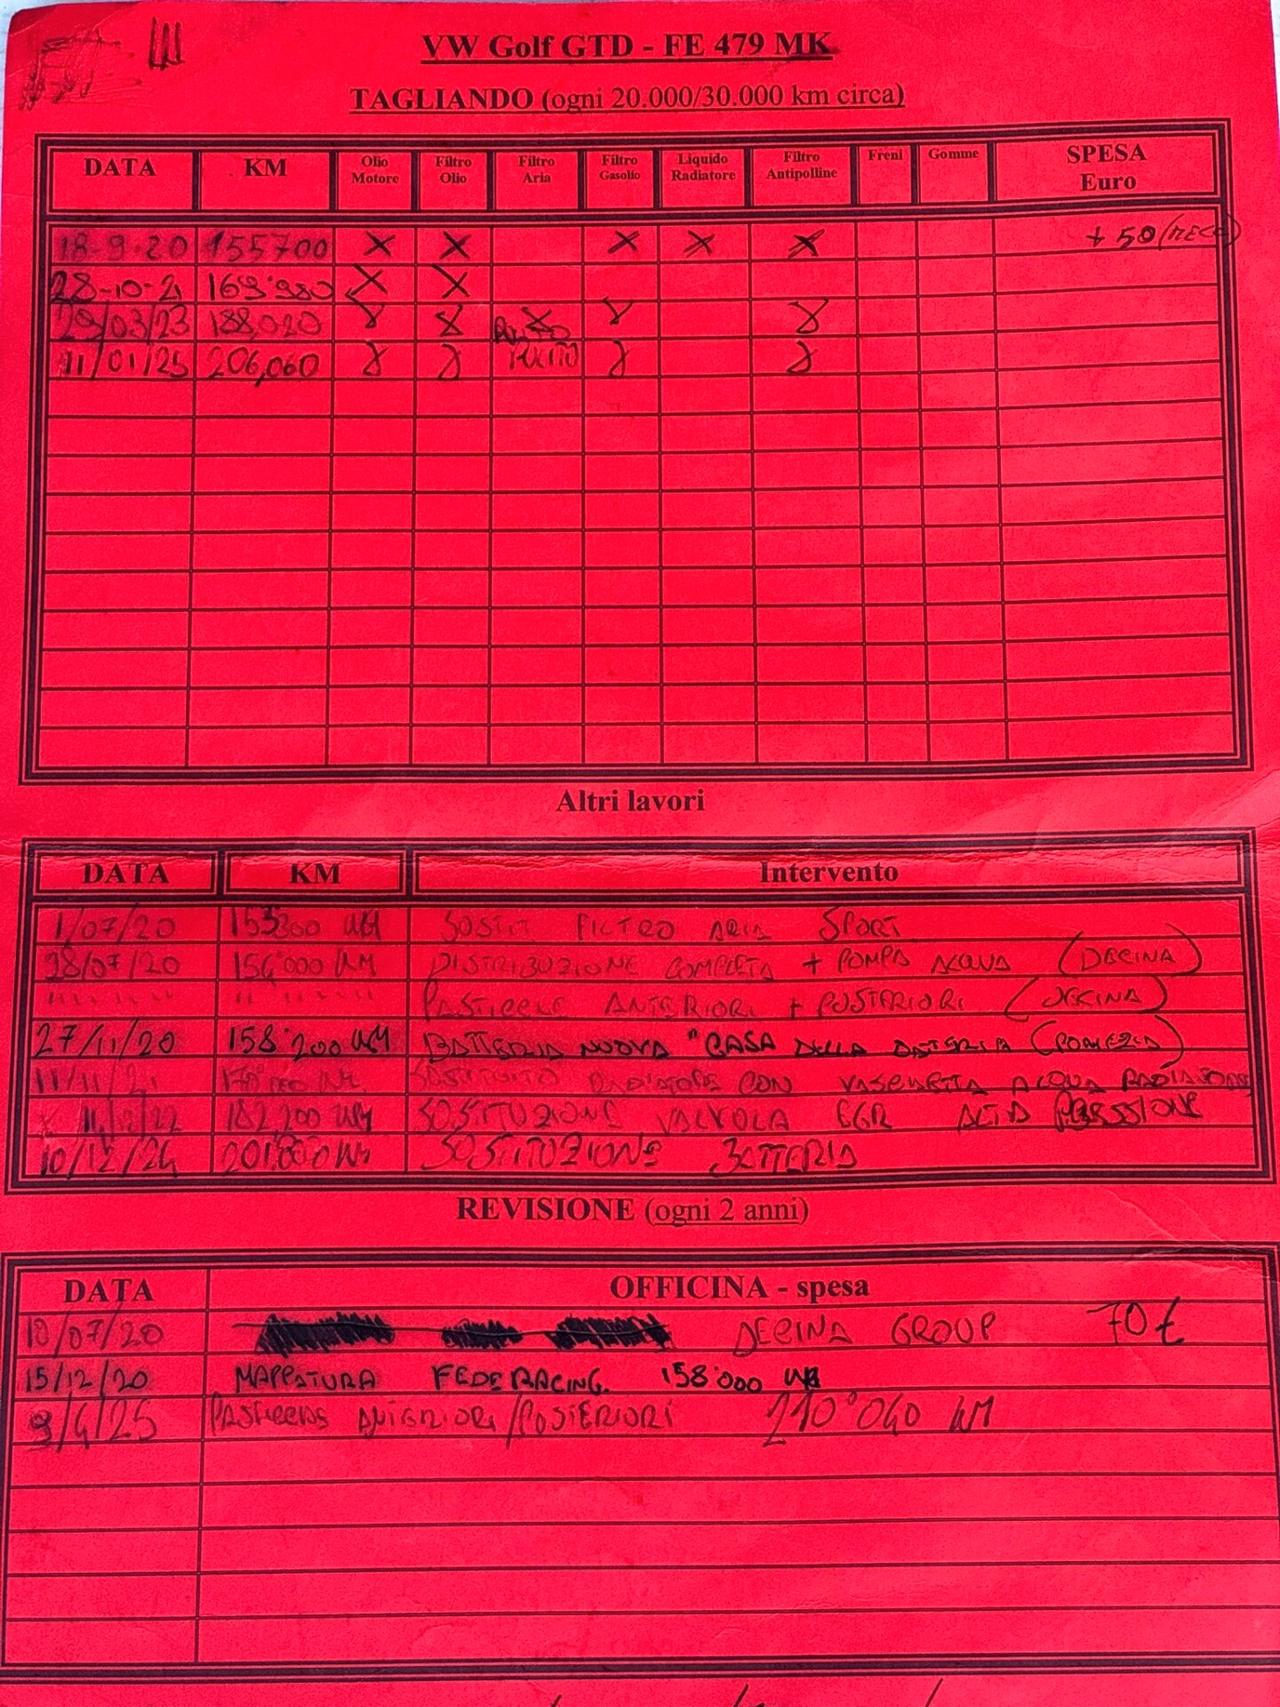 VW Golf GTD - FE 479 MK
TAGLIANDO (ogni 20.000/30.000 km circa)
DATA KM Olio Motore Filtro Olio Filtro Aria Filtro Gasolio Liquido Radiatore Filtro Antipolline Freni Gomme SPESA Euro
18-9-20 155700 X X X X X + 50
28-10-21 169'980 X X
29/03/23 188,020 X X X X X
11/01/25 206,060 X X PULITO X X
Altri lavori
DATA KM Intervento
1/07/20 153'300 KM SOSTIT FILTRO ARIA SPORT
28/07/20 154'000 KM DISTRIBUZIONE COMPLETA + POMPA ACQUA (DECINA)
" " " " " " PASTICCHE ANTERIORI + POSTERIORI (DECINA)
27/11/20 158'200 KM BATTERIA NUOVA "CASA DELLA BATTERIA (POMEZIA)
11/11/21 SOSTITUITO RADIATORE CON VASCHETTA ACQUA RADIATORE
182,200 KM SOSTITUZIONE VALVOLA EGR ALTA PRESSIONE
10/12/24 SOSTITUZIONE BATTERIA
REVISIONE (ogni 2 anni)
DATA OFFICINA - spesa
10/07/20 DECINA GROUP 70€
15/12/20 MAPPATURA FEDERACING. 158'000 KM
9/4/25 PASTICCHE ANTERIORI/POSTERIORI 210'040 KM